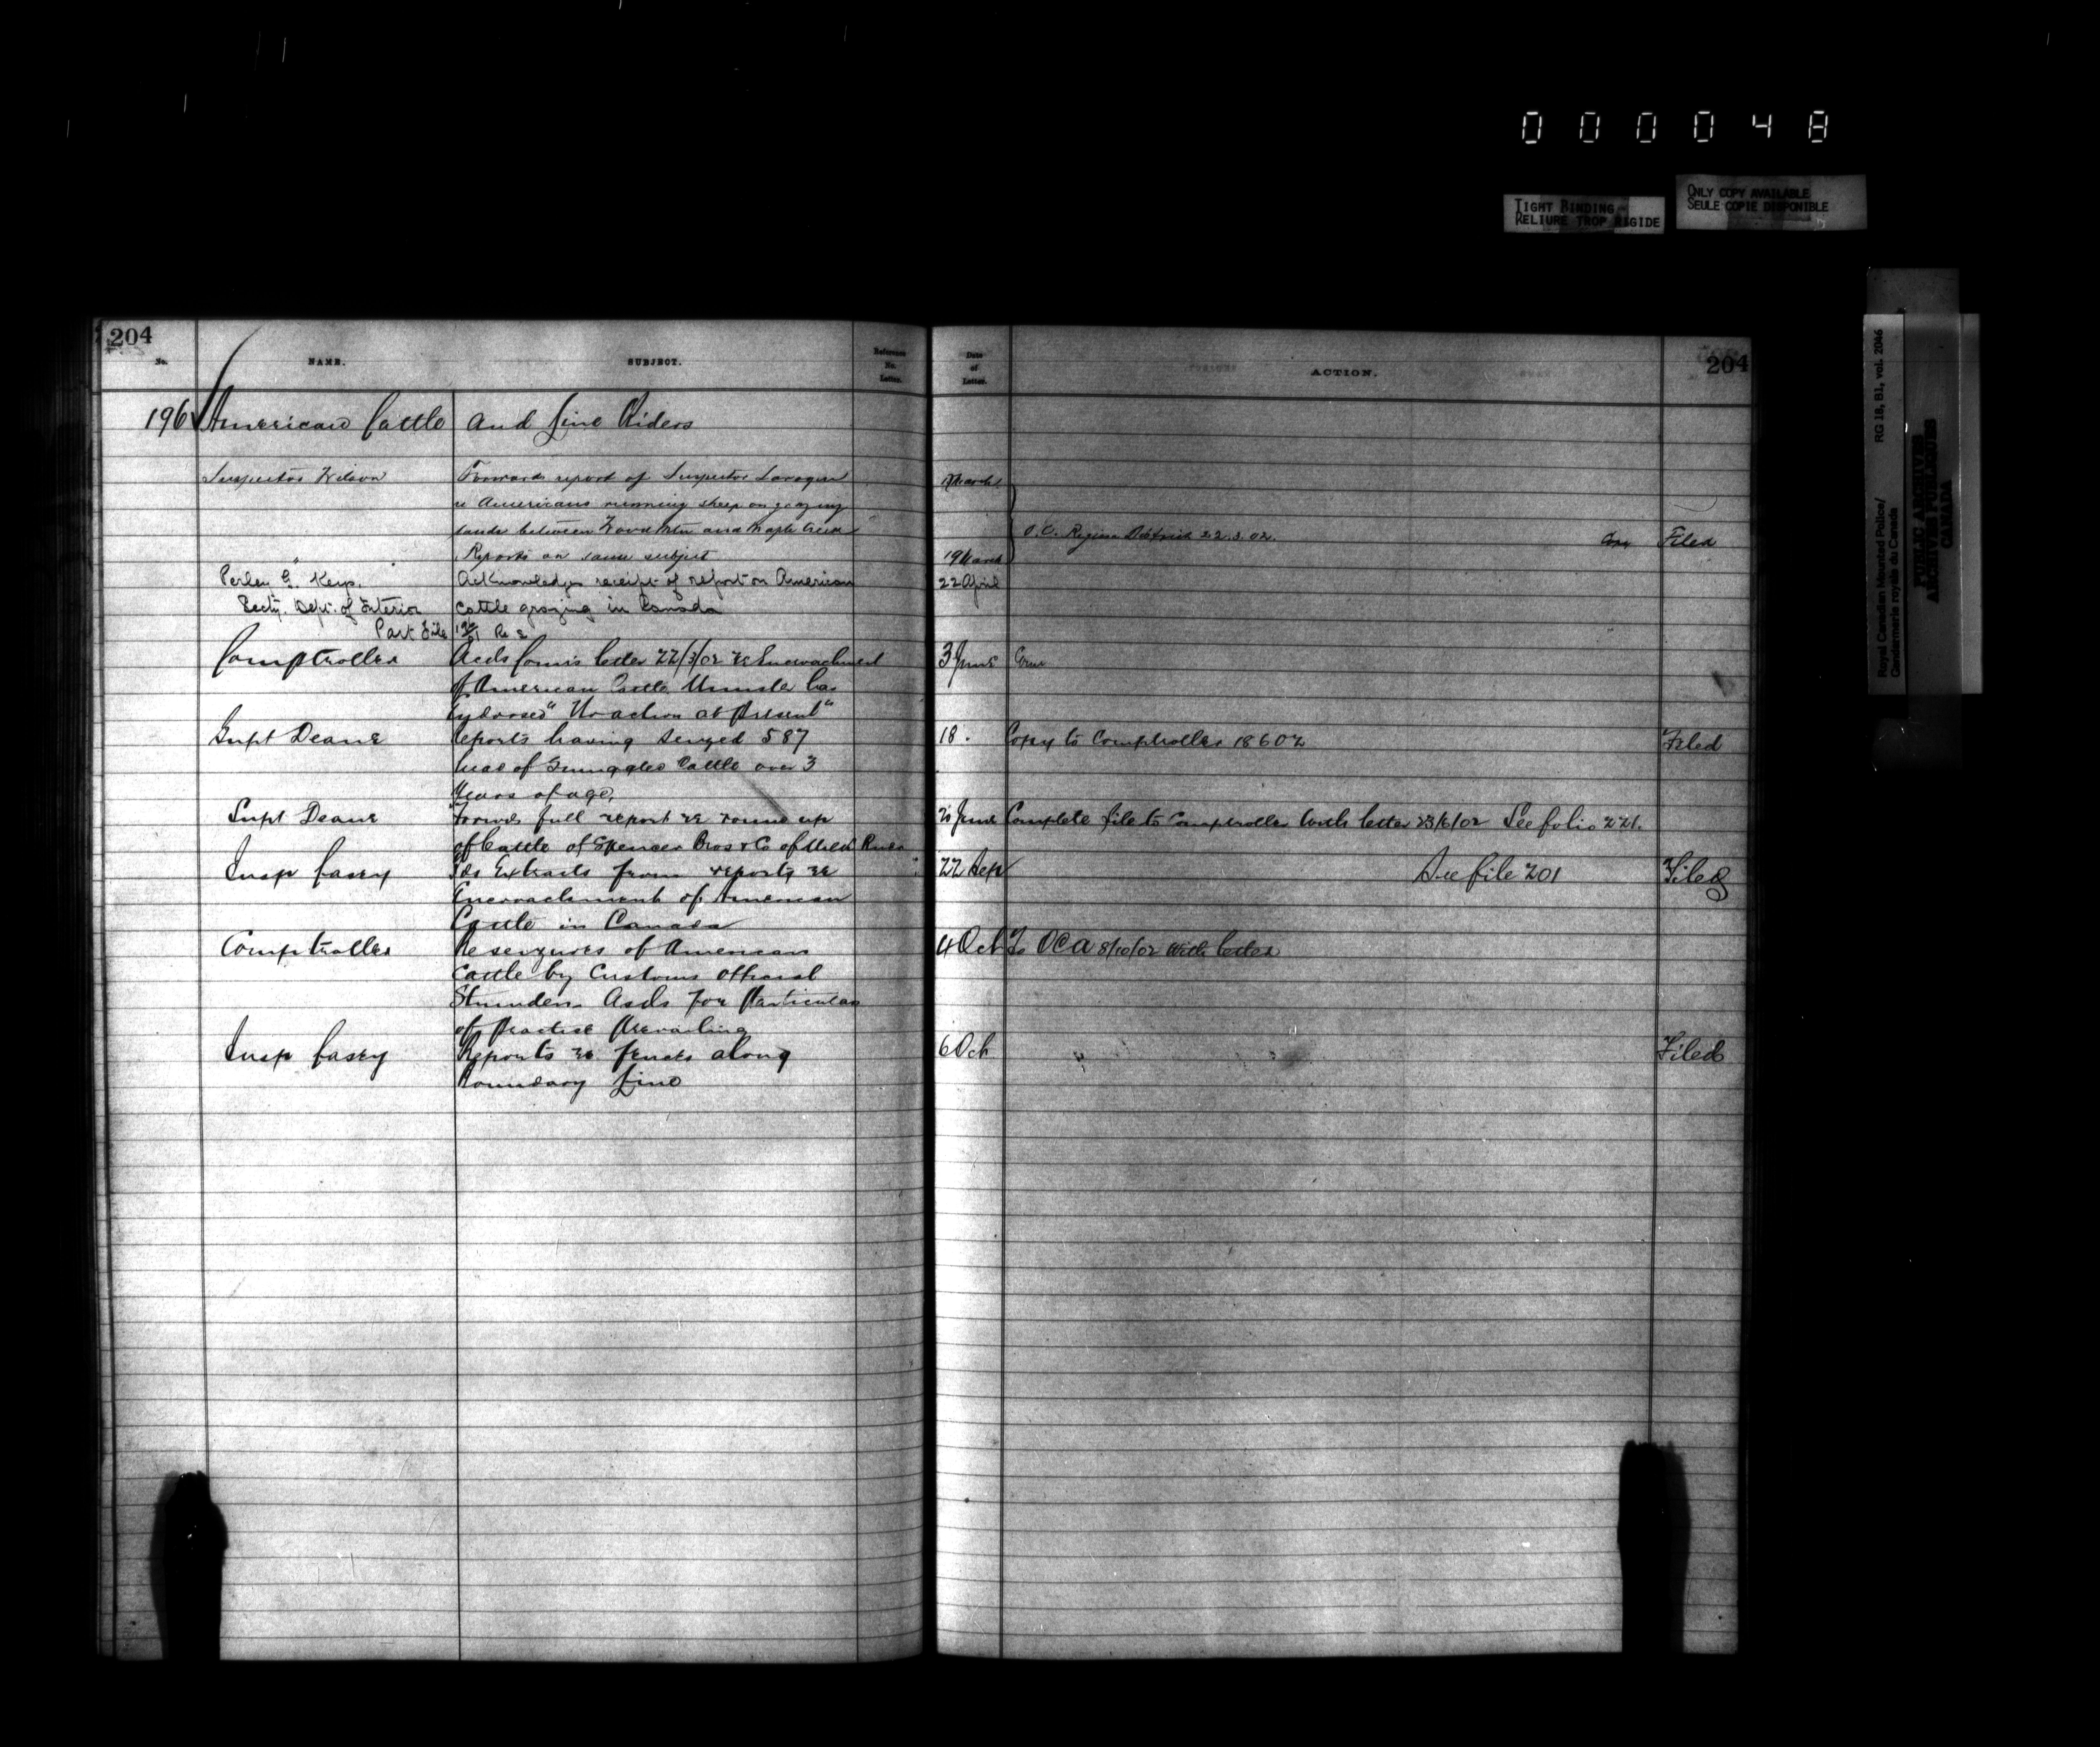 000048
TIGHT BINDING
RELIURE TROP RIGIDE
ONLY COPY AVAILABLE
SEULE COPIE DISPONIBLE
Royal Canadian Mounted Police/
Gendarmerie royale du Canada
RG 18, B1, vol. 2046
PUBLIC ARCHIVES
ARCHIVES PUBLIQUES
CANADA
204
No. NAME. SUBJECT. Reference No. Letter. Date of Letter. ACTION. 204
196 American Cattle and Line Riders
Inspector Wilson Forwards report of Inspector March
re Americans running sheep on grazing
lands between Wood Mtn and Maple Creek O.C. Regina District 22.3.02. Filed
" " Reports on same subject 19 March
Perley G. Keyes. Acknowledges receipt of report on American 22 April
Secty. Dept. of Interior cattle grazing in Canada
Part File Re
Comptroller Acds Comr's letter 22/3/02 re Encroachment 3 June
of American Cattle Minister has
Endorsed "No action at Present"
Supt Deane Reports having seized 587 18. Copy to Comptroller 18 6 02 Filed
head of Smuggled Cattle over 3
Years of age.
Supt Deane Forwds full report re round up June Complete file to Comptroller with letter 23/6/02 See folio 221.
of Cattle of Spencer Bros & Co of Milk River
Insp Casey Fds Extracts from reports re 22 Sep See file 201 Filed
Encroachment of American
Cattle in Canada
Comptroller Re seizures of American 4 Oct To OCA 8/10/02 with letter
Cattle by Customs Official
Asks for Particulars
of Practise Prevailing
Insp Casey Reports re fences along 6 Oct Filed
Boundary Line